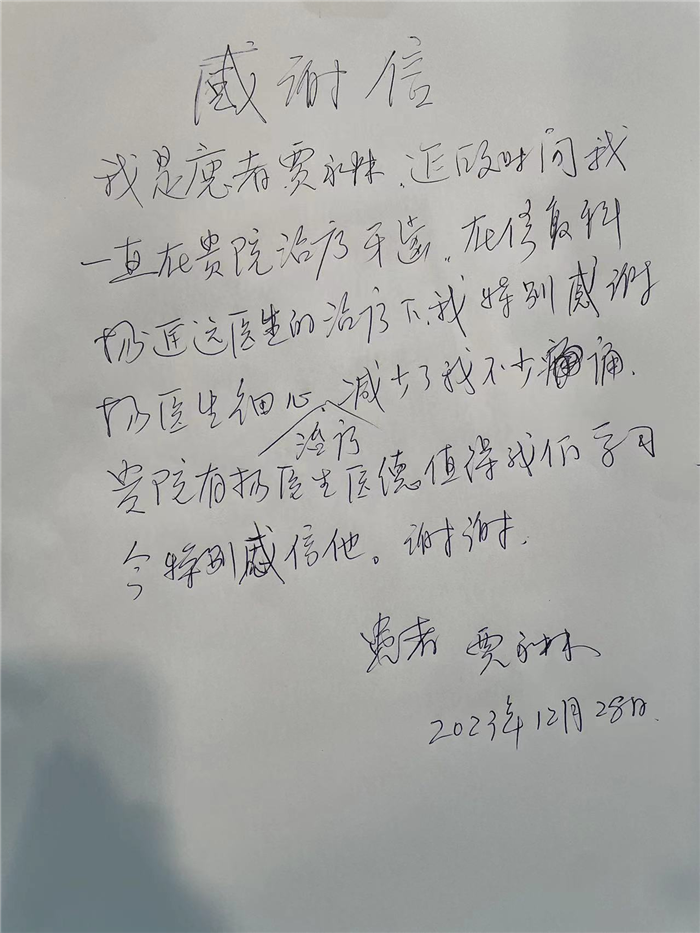 感谢信
我是患者贾永林、近段时间我
一直在贵院治疗牙齿。在修复科
杨连远医生的治疗下、我特别感谢
杨医生细心治疗、减少了我不少痛
贵院有杨医生医德值得我们学习
今特别感信他。谢谢.
患者 贾永林
2023年12月28日.